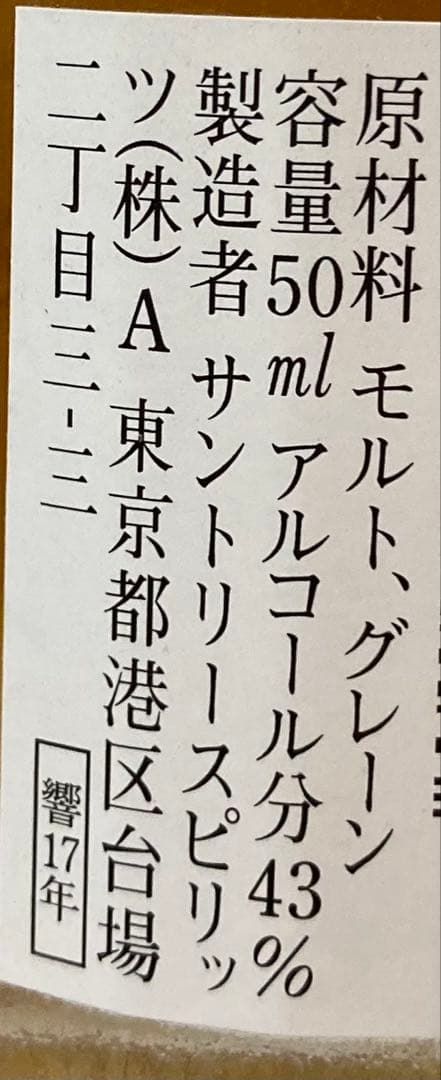 原材料 モルト、グレーン
容量 50ml アルコール分 43%
製造者 サントリースピリッ
ツ(株)A 東京都港区台場
二丁目三-三
響17年